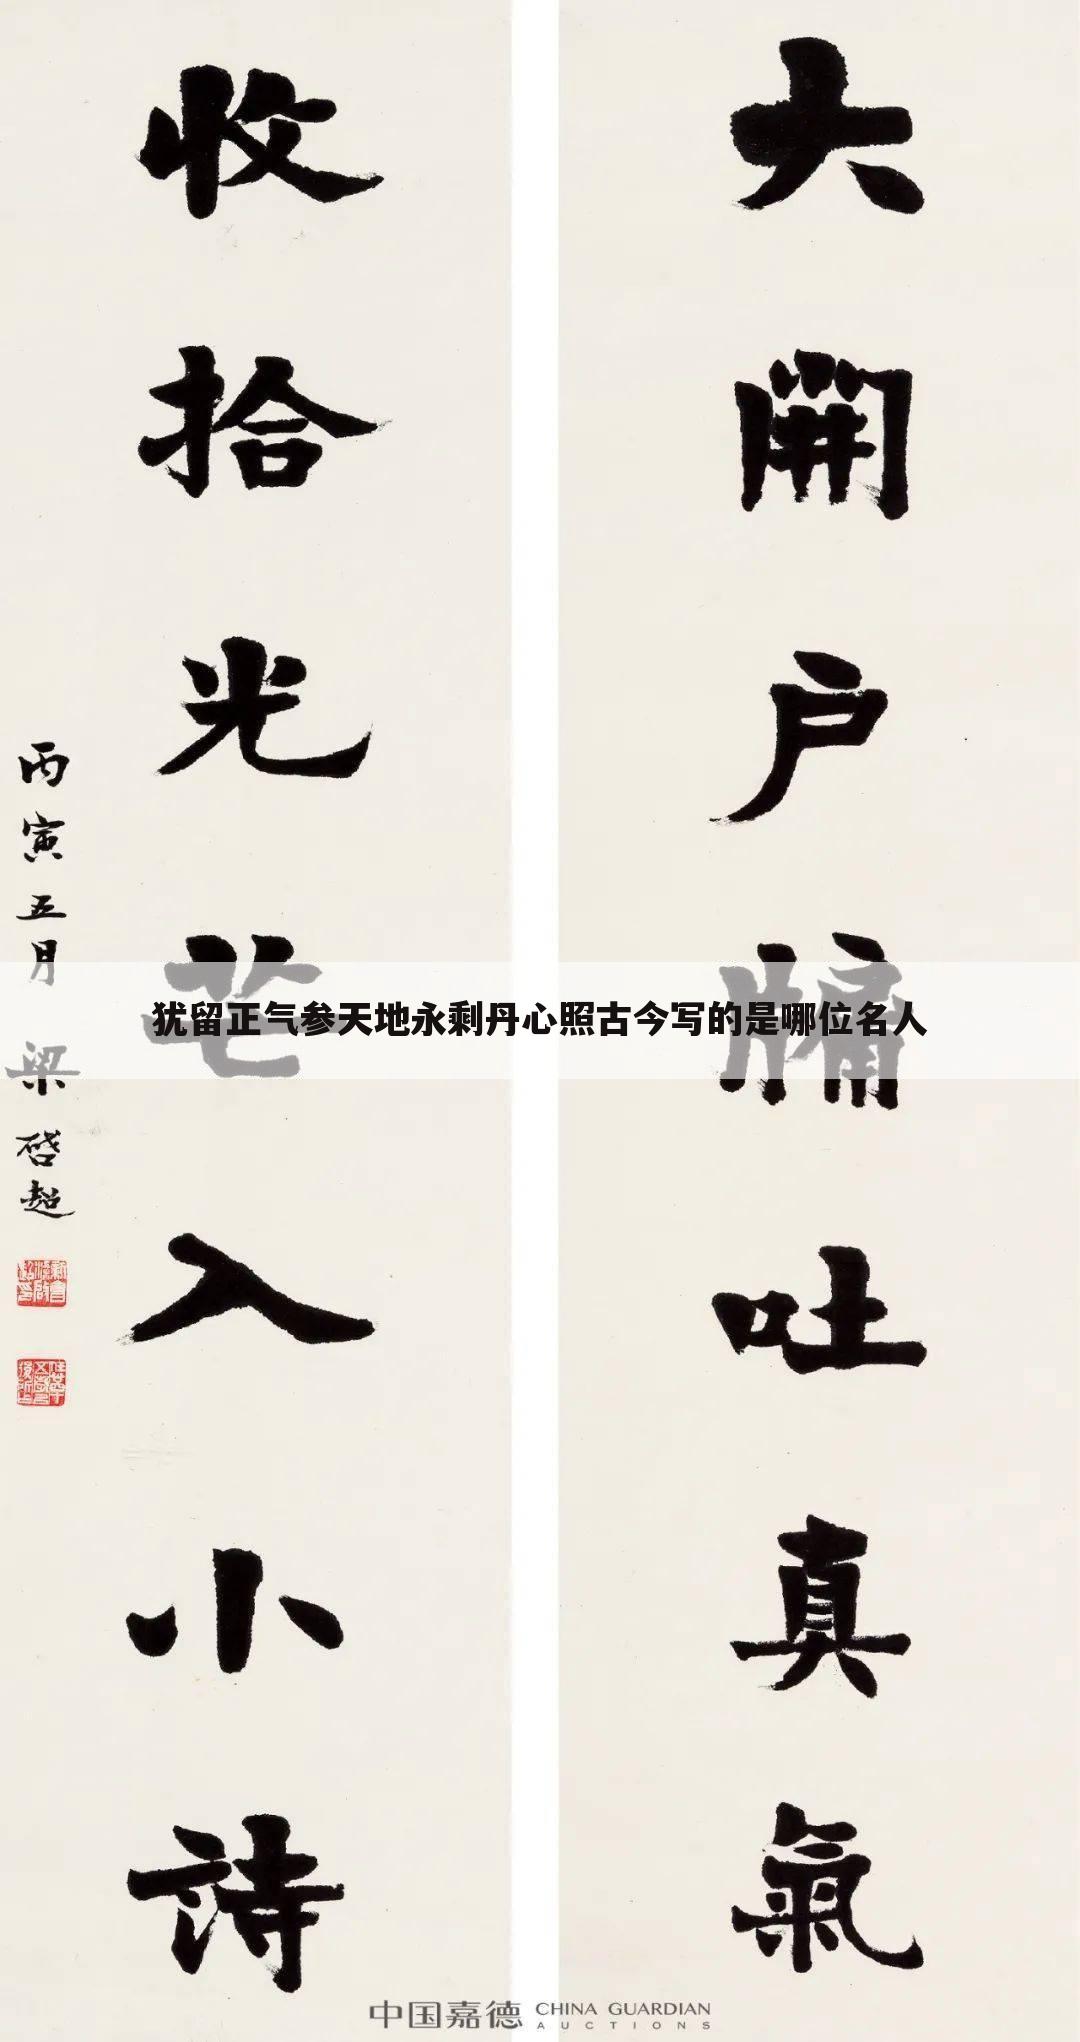 大開户牖吐真氣
收拾光芒入小詩
丙寅五月 梁啓超
犹留正气参天地永剩丹心照古今写的是哪位名人
中国嘉德 CHINA GUARDIAN
AUCTIONS